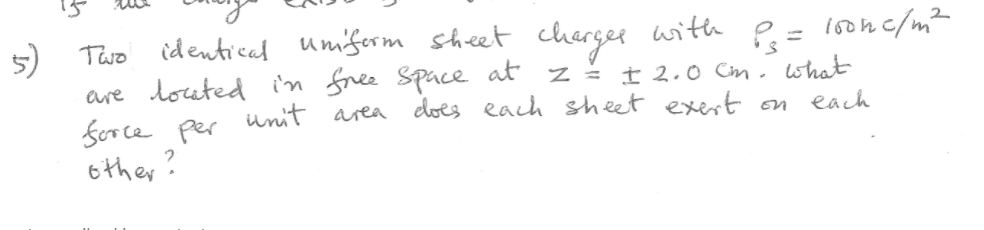 5) Two identical uniform sheet charges with ρs = 100nc/m²
are located in free space at z = ± 2.0 cm. what
force per unit area does each sheet exert on each
other?